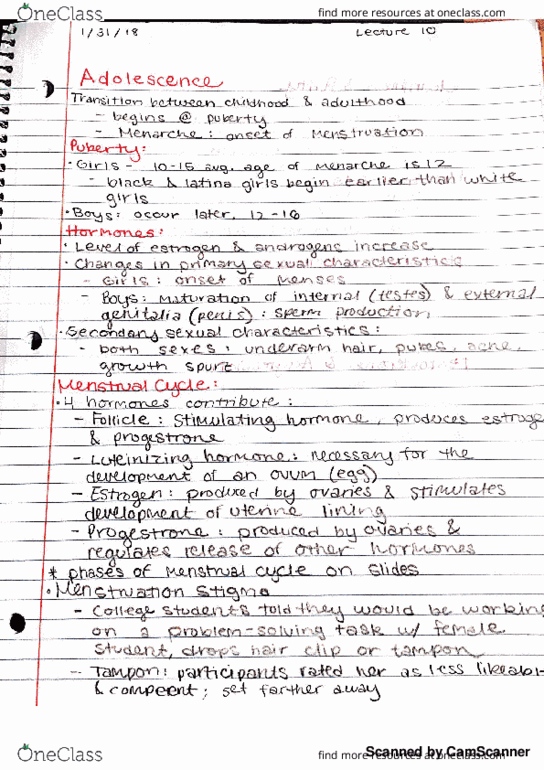 OneClass
find more resources at oneclass.com
1/31/18
Lecture 10
Adolescence
Transition between childhood & adulthood
- begins @ puberty
- Menarche: onset of menstruation
Puberty:
• Girls - 10-15 avg. age of menarche is 12
- black & latina girls begin earlier than white
girls
• Boys: occur later, 12-16
Hormones:
• Level of estrogen & androgens increase
• Changes in primary sexual characteristics
- Girls: onset of menses
- Boys: maturation of internal (testes) & external
genitalia (penis): sperm production
• Secondary sexual characteristics:
- both sexes: underarm hair, pubes, acne,
growth spurt
Menstrual Cycle:
• 4 hormones contribute:
- Follicle: Stimulating hormone, produces estroge
& progestrone
- Luteinizing hormone: necessary for the
development of an ovum (egg)
- Estrogen: produced by ovaries & stimulates
development of uterine lining
- Progestrone: produced by ovaries &
regulates release of other hormones
* phases of menstrual cycle on slides
• Menstruation stigma
- College students told they would be working
on a problem-solving task w/ female
student, drops hair clip or tampon
- Tampon: participants rated her as less likeabl-
& competent; set farther away
OneClass
find more resources at oneclass.com
Scanned by CamScanner